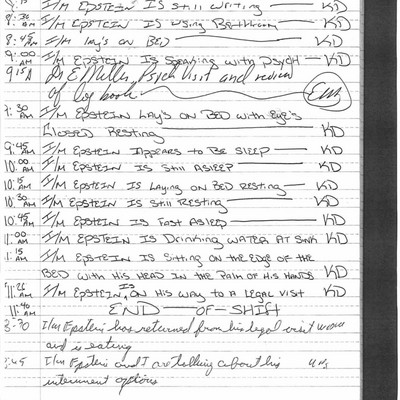 8:15 I/M EPSTEIN IS Still writing KD
8:30 AM I/M EPSTEIN IS Using Bathroom KD
8:45 AM I/M lay's on BED KD
9:00 AM I/M EPSTEIN IS Speaking with PSYCH KD
9:15A Dr E Miller Psych Visit and review
of log book
9:30 AM I/M EPSTEIN LAY'S ON BED with Eye's
Closed Resting KD
9:45 AM I/M EPSTEIN Appears to BE SLEEP KD
10:00 AM I/M EPSTEIN IS Still ASLEEP KD
10:15 AM I/M EPSTEIN IS Laying on BED Resting KD
10:30 AM I/M EPSTEIN IS Still Resting KD
10:45 AM I/M EPSTEIN IS Fast ASleep KD
11:00 AM I/M EPSTEIN IS Drinking WATER AT Sink KD
11:15 AM I/M EPSTEIN IS Sitting on the EDGE OF the
BED with His HEAD IN the Palm OF His HANDS KD
11:26 AM I/M EPSTEIN IS ON His way to A LEGAL VISIT KD
11:40 AM END OF SHIFT
I/m Epstein has returned from his legal visit
and is eating
I/m Epstein and I are talking about his
internment options